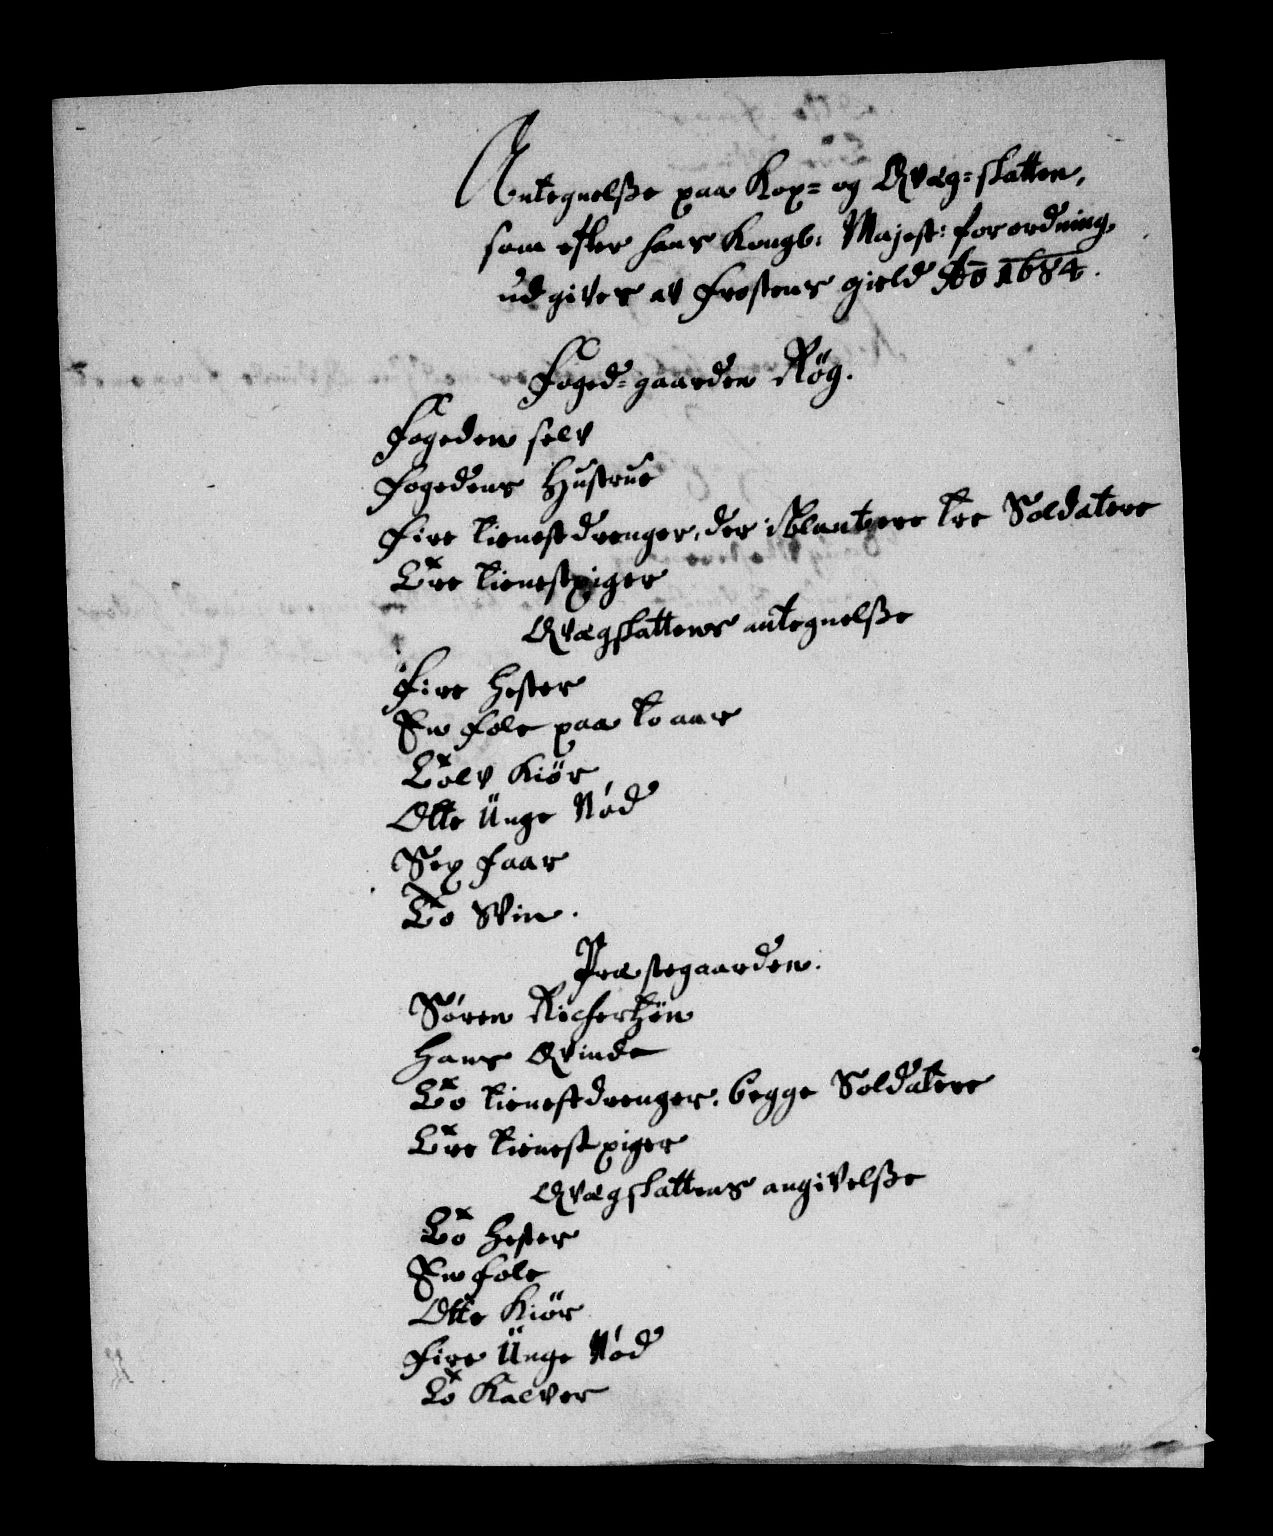 Antegnelsse paa Kop= og Qvæg=skatten,
som efter hans Kongl: Majest: forordning
udgives av Frostens gield Ao 1684.
Foged=gaarden Røg.
Fogeden selv
Fogedens Hustrue
Fire tienestdrenger, der iblant ere tre Soldatere
Tre tienestpiger
Qvægskattens antegnelsse
Fire Hester
En fole paa to aar
Tolv Kiør
Otte Unge Nød
Sex faar
To Svin.
Præstegaarden.
Søren
Hans Qvinde
To tienestdrenger, begge Soldatere
Tre tienestpiger
Qvægskattens angivelsse
To Hester
En fole
Otte Kiør
Fire Unge Nød
To Kalver